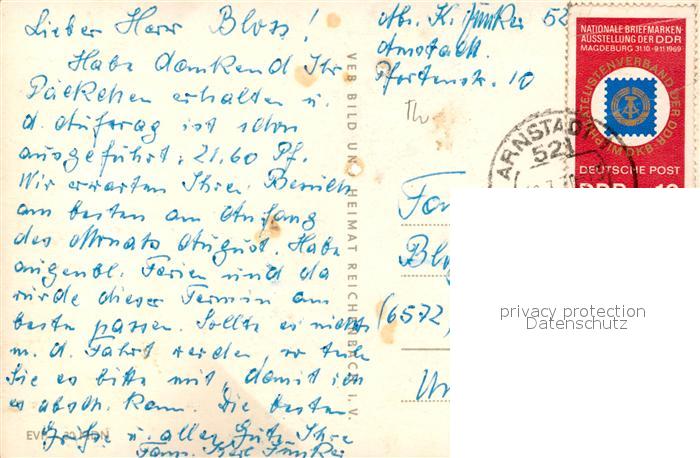 Lieber Herr Bloss!
Habe dankend Ihr
Päckchen erhalten u.
d. Auftrag ist schon
ausgeführt: 21.60 Pf.
Wir erwarten Ihren Besuch
am besten am Anfang
des Monats August. Habe
augenbl. Ferien und da
würde dieser Termin am
beste passen. Sollte es nichts
m. d. Fahrt werden, so teile
Sie es bitte mit, damit ich
es absch. kann. Die besten
Grüße u. alles Gute Ihre
Fam. Karl Junker
Abs. K. Junker 52
Arnstadt
Pfortenstr. 10
VEB BILD UND HEIMAT REICHENBACH I. V.
EVP
NATIONALE BRIEFMARKEN-
AUSSTELLUNG DER DDR
MAGDEBURG 31.10.-9.11.1969
PHILATELISTENVERBAND DER DDR IM DKB
DEUTSCHE POST
DDR 10
ARNSTADT
521
Fam
(6572)
privacy protection
Datenschutz